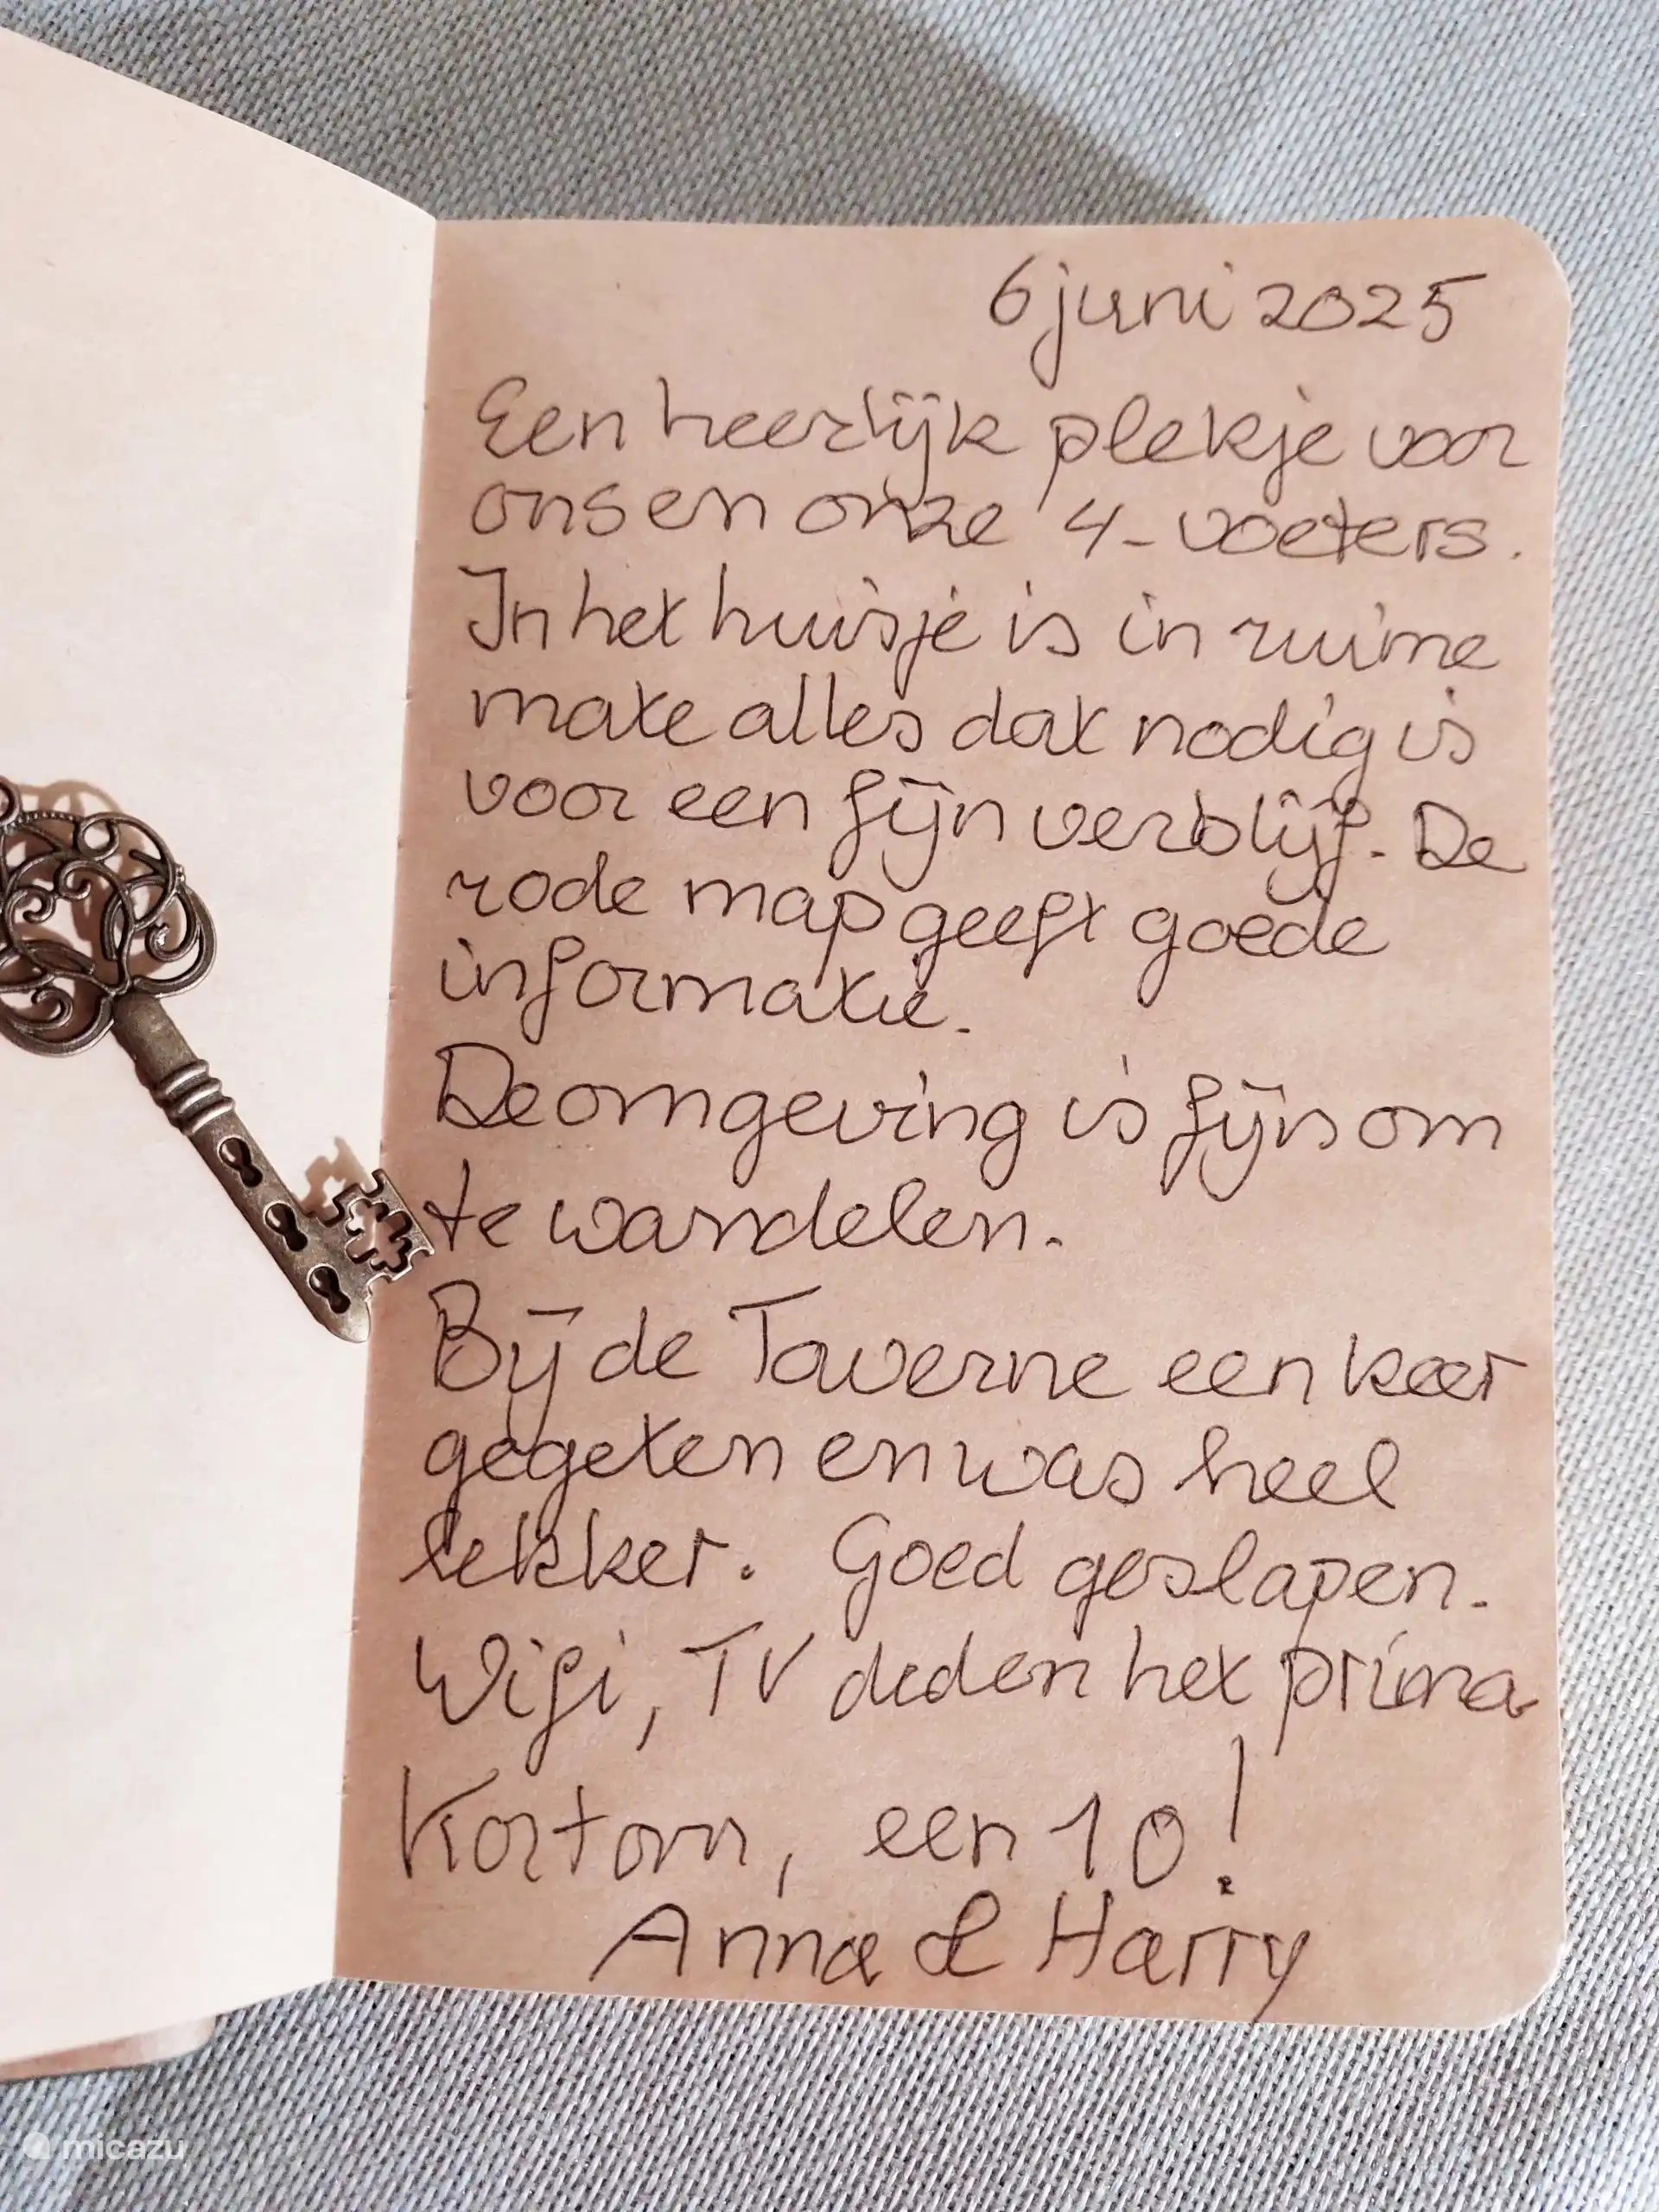 6 juni 2025
Een heerlijk plekje voor
ons en onze 4-voeters.
In het huisje is in ruime
mate alles dat nodig is
voor een fijn verblijf. De
rode map geeft goede
informatie.
De omgeving is fijn om
te wandelen.
Bij de Taverne een keer
gegeten en was heel
lekker. Goed geslapen.
Wifi, TV deden het prima
Kortom, een 10!
Anna & Harry
micazu